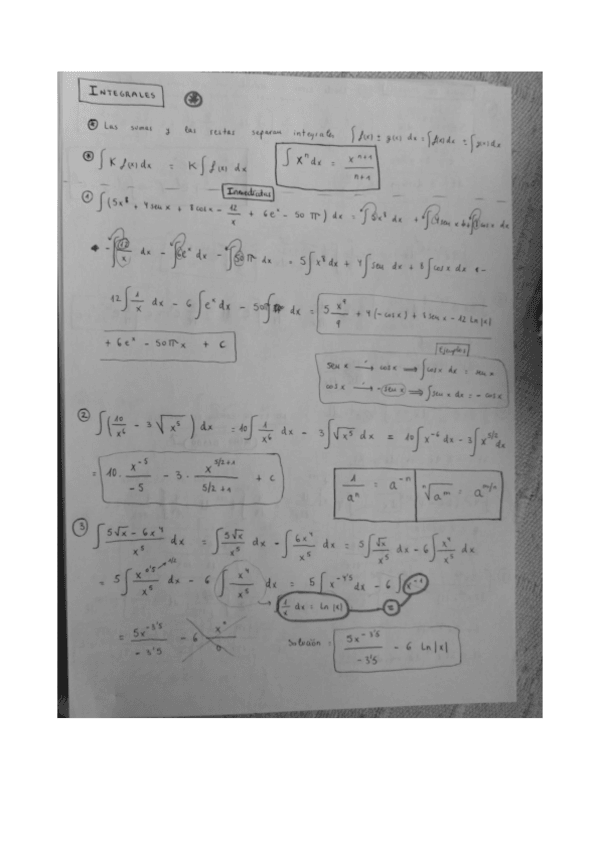 INTEGRALES
Las sumas y las restas separan integrales ∫ f(x) ± g(x) dx = ∫ f(x) dx ± ∫ g(x) dx
∫ K f(x) dx = K ∫ f(x) dx    ∫ xⁿ dx = xⁿ⁺¹ / n+1
Inmediatas
① ∫ (5x⁸ + 4 sen x + 8 cos x - 12/x + 6eˣ - 50 π) dx = ∫ 5x⁸ dx + ∫ 4 sen x dx + ∫ 8 cos x dx
- ∫ 12/x dx - ∫ 6eˣ dx - ∫ 50 π dx = 5 ∫ x⁸ dx + 4 ∫ sen dx + 8 ∫ cos x dx -
12 ∫ 1/x dx - 6 ∫ eˣ dx - 50 ∫ π dx = 5 x⁹/9 + 4 (-cos x) + 8 sen x - 12 Ln |x|
+ 6eˣ - 50 π x + C
Ejemplos
sen x → cos x ⟹ ∫ cos x dx = sen x
cos x → - sen x ⟹ ∫ sen x dx = - cos x
② ∫ (10/x⁶ - 3 √x⁵) dx = 10 ∫ 1/x⁶ dx - 3 ∫ √x⁵ dx = 10 ∫ x⁻⁶ dx - 3 ∫ x^5/2 dx
= 10 · x⁻⁵/-5 - 3 · x^5/2+1 / 5/2+1 + C
1/aⁿ = a⁻ⁿ    ⁿ√aᵐ = a^m/n
③ ∫ 5√x - 6x⁴ / x⁵ dx = ∫ 5√x/x⁵ dx - ∫ 6x⁴/x⁵ dx = 5 ∫ √x/x⁵ dx - 6 ∫ x⁴/x⁵ dx
= 5 ∫ x^0'5/x⁵ dx - 6 ∫ x⁴/x⁵ dx = 5 ∫ x^-4'5 dx - 6 ∫ x⁻¹
1/2
∫ 1/x dx = Ln |x|
= 5x^-3'5 / -3'5 - 6 x⁰/0    Solución = 5x^-3'5 / -3'5 - 6 Ln |x|